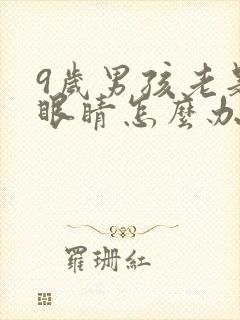 9歲男孩老是
眼睛怎麼办
羅珊紅